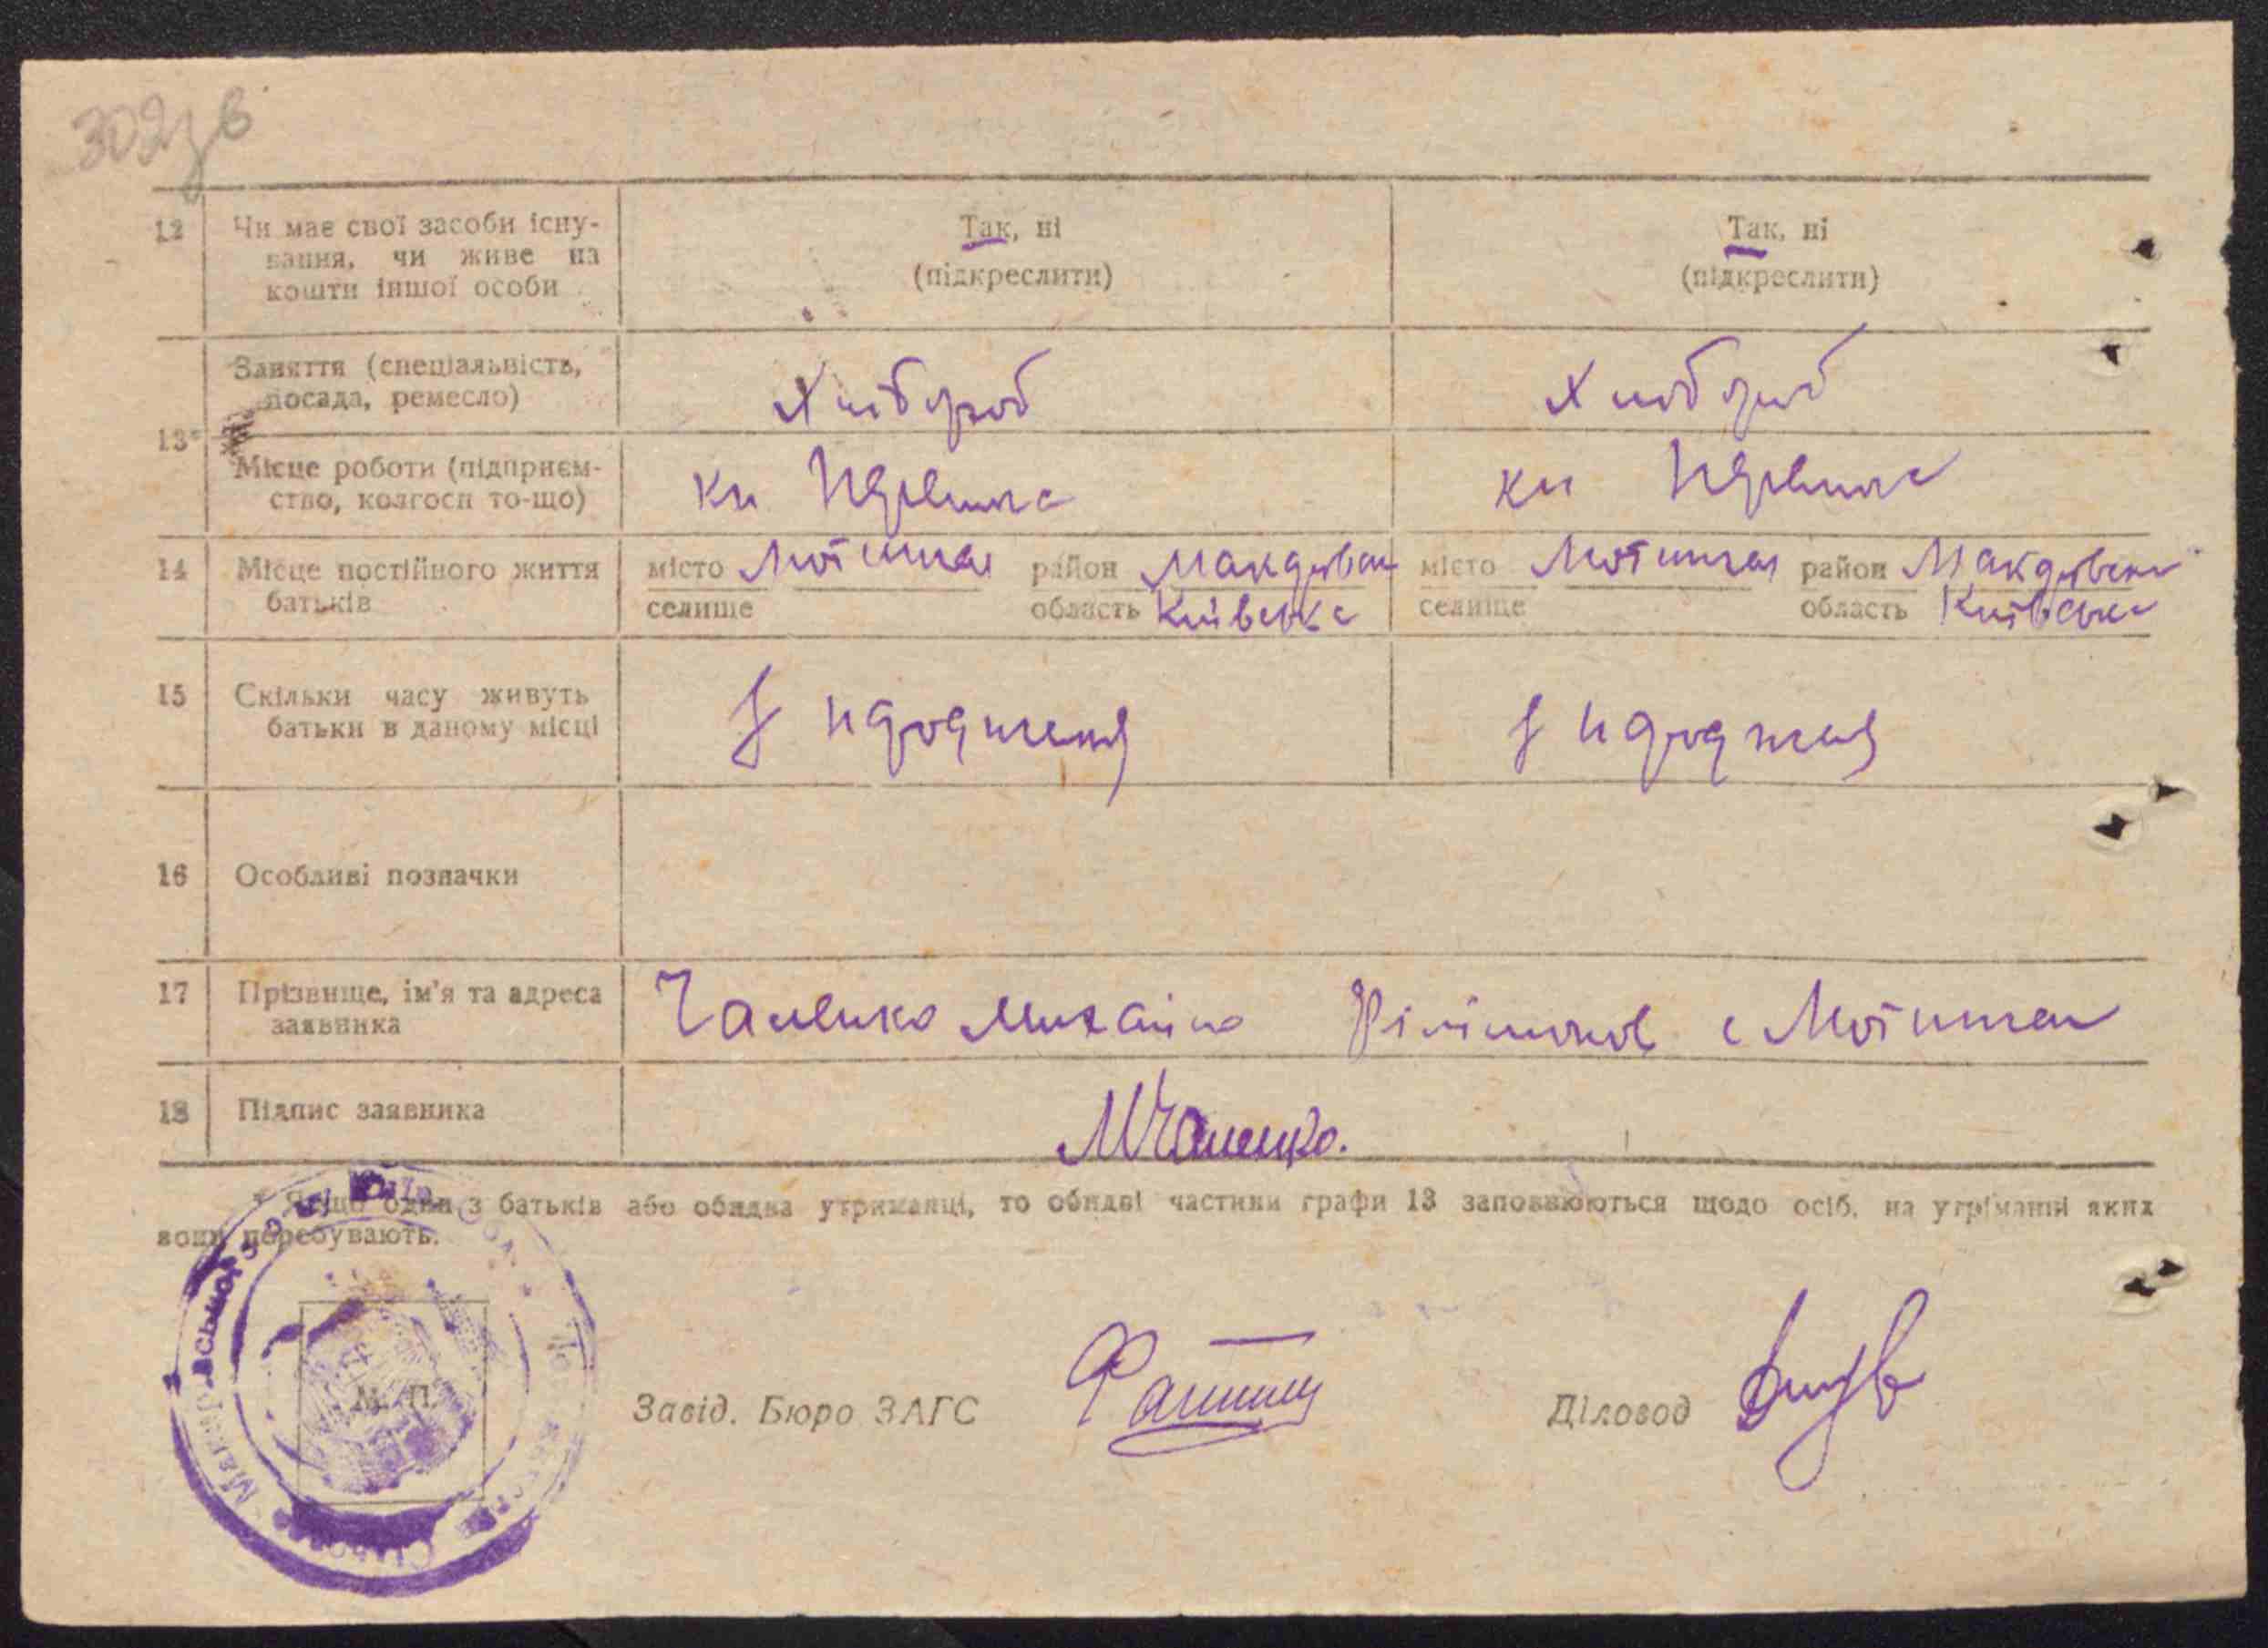 302зв
12 Чи має свої засоби існу-
вання, чи живе на
кошти іншої особи
Так, ні
(підкреслити)
Так, ні
(підкреслити)
13*
Заняття (спеціальність,
посада, ремесло)
Хлібороб
Хлібороб
Місце роботи (підприєм-
ство, колгосп то-що)
14 Місце постійного життя
батьків
місто Мотижин район Макарівськ
селище область Київська
місто Мотижин район Макарівськ
селище область Київська
15 Скільки часу живуть
батьки в даному місці
З народження
З народження
16 Особливі позначки
17 Прізвище, ім'я та адреса
заявника
Чаленко Михайло Філімонов с Мотижин
18 Підпис заявника
МЧаленко.
* Якщо один з батьків або обидва утриманці, то обидві частини графи 13 заповнюються щодо осіб, на утріманні яких
вони перебувають.
М. П.
Завід. Бюро ЗАГС
Діловод